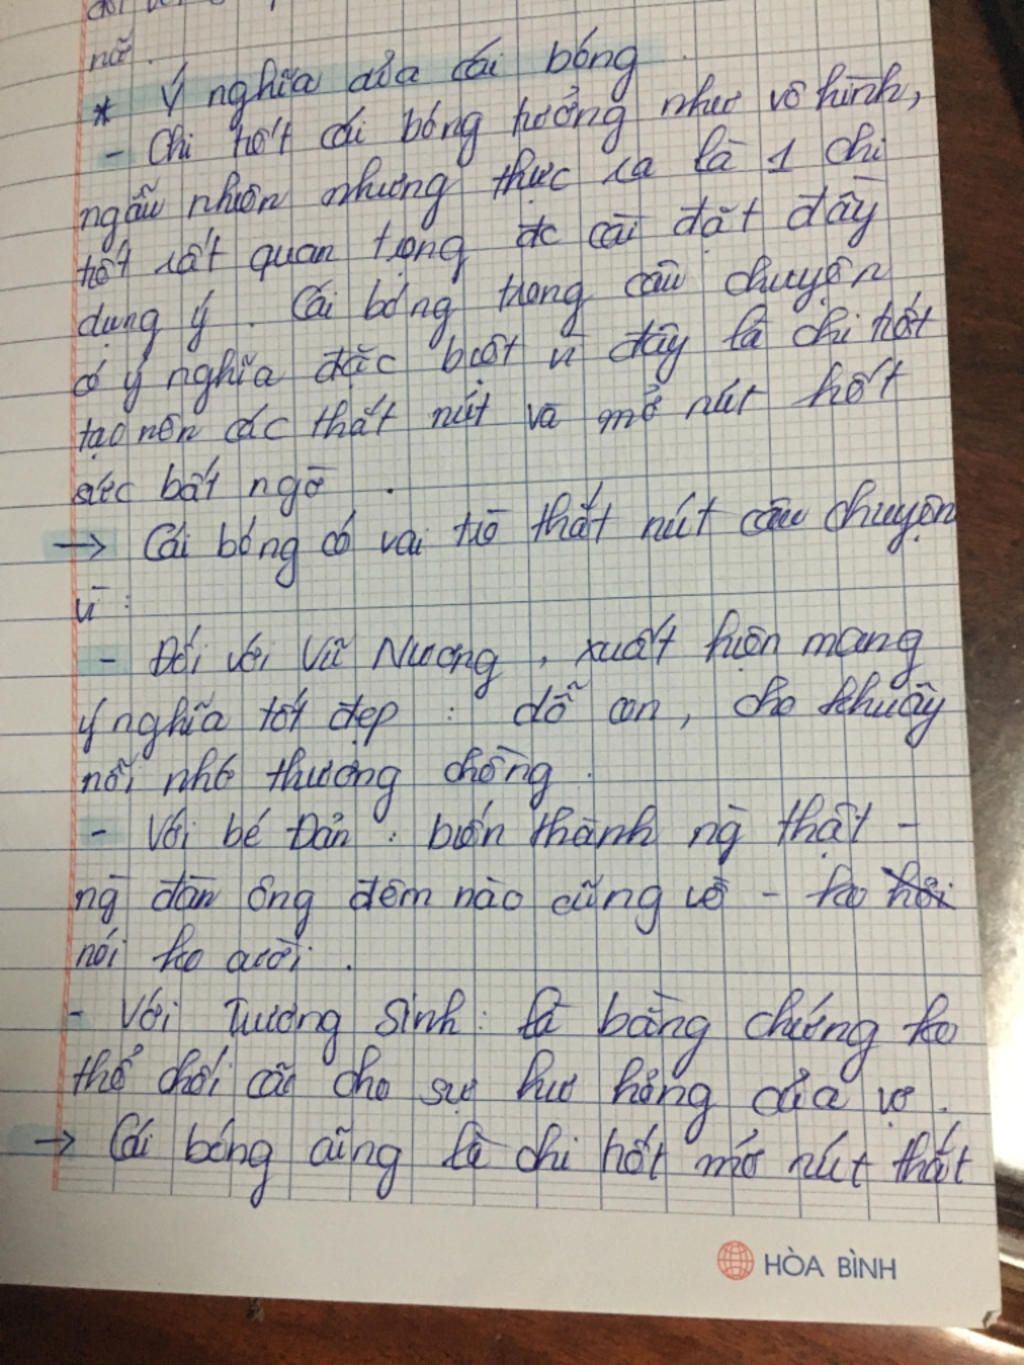 nữ.
* Ý nghĩa của cái bóng
- Chi tiết cái bóng tưởng như vô hình,
ngẫu nhiên nhưng thực ra là 1 chi
tiết rất quan trọng đc cài đặt đầy
dụng ý. Cái bóng trong câu chuyện
có ý nghĩa đặc biệt vì đây là chi tiết
tạo nên các thắt nút và mở nút hết
sức bất ngờ.
→ Cái bóng có vai trò thắt nút câu chuyện
vì:
- Đối với Vũ Nương, xuất hiện mang
ý nghĩa tốt đẹp: dỗ con, cho khuây
nỗi nhớ thương chồng.
- Với bé Đản: biến thành ng thật -
ng đàn ông đêm nào cũng về - ko
nói ko cười.
- Với Trương Sinh: là bằng chứng ko
thể chối cãi cho sự hư hỏng của vợ.
→ Cái bóng cũng là chi tiết mở nút thắt
HÒA BÌNH